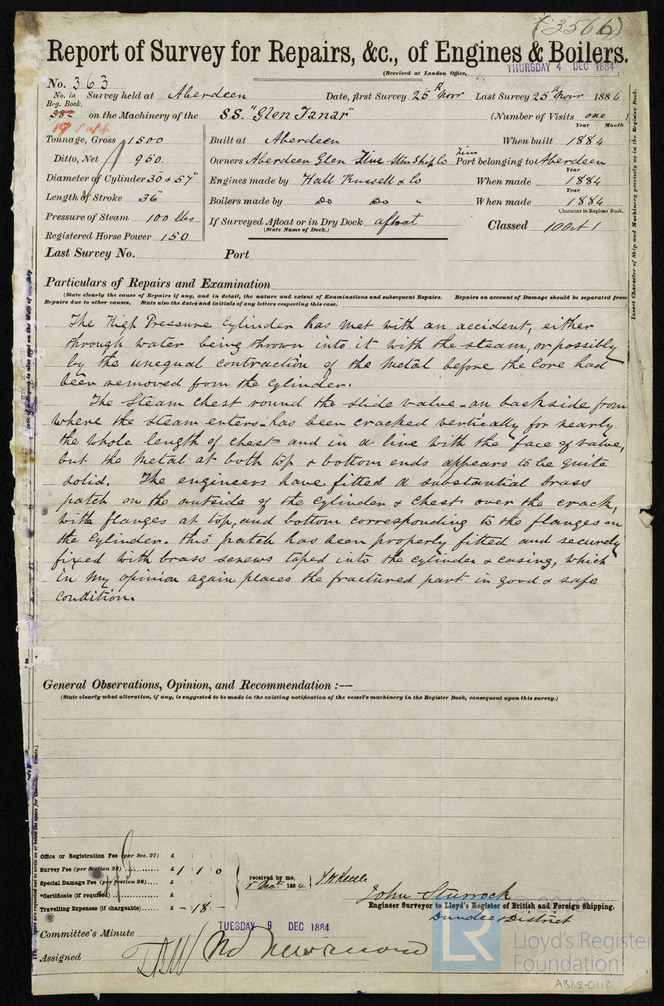 (3566)
Report of Survey for Repairs, &c., of Engines & Boilers.
(Received at London Office, THURSDAY 4 DEC 1884
No. 363
No. in Reg. Book. Survey held at Aberdeen Date, first Survey 25th Novr Last Survey 25th Novr 1884
on the Machinery of the S.S. "Glen Tanar" (Number of Visits one)
Year Month
Tonnage, Gross 1500 Built at Aberdeen When built 1884
Ditto, Net 950. Owners Aberdeen Glen Line Steam Ship Co Port belonging to Aberdeen
Year
Diameter of Cylinder 30 & 57" Engines made by Hall Russell & Co When made 1884
Year
Length of Stroke 36" Boilers made by Do Do " When made 1884
Character in Register Book.
Pressure of Steam 100 lbs If Surveyed Afloat or in Dry Dock afloat Classed 100A1
(State Name of Dock.)
Registered Horse Power 150
Last Survey No. Port
Particulars of Repairs and Examination
(State clearly the cause of Repairs if any, and in detail, the nature and extent of Examinations and subsequent Repairs. Repairs on account of Damage should be separated from
Repairs due to other causes. State also the dates and initials of any letters respecting this case.
The High Pressure Cylinder has met with an accident, either
through water being thrown into it with the steam, or possibly
by the unequal contraction of the metal before the Core had
been removed from the Cylinder.
The Steam Chest round the slide valve - on backside from
where the steam enters - has been cracked vertically for nearly
the whole length of chest and in a line with the face of valve,
but the metal at both top & bottom ends appears to be quite
solid. The engineers have fitted a substantial brass
patch on the outside of the Cylinder & Chest over the crack,
with flanges at top, and bottom corresponding to the flanges on
the Cylinder. this patch has been properly fitted and securely
fixed with brass screws taped into the cylinder & casing, which
in my opinion again places the fractured part in good & safe
condition.
General Observations, Opinion, and Recommendation :—
(State clearly what alteration, if any, is suggested to be made in the existing notification of the vessel's machinery in the Register Book, consequent upon this survey.)
Office or Registration Fee (per Sec. 27) £ : :
Survey Fee (per Section 28) £ 1 : 1 : 0
Special Damage Fee (per Section 28) £ : :
*Certificate (if required) £ : :
Travelling Expenses (if chargeable) £ - : 18 : -
received by me,
1884
John Sturrock
Engineer Surveyor to Lloyd's Register of British and Foreign Shipping.
Dundee District
Committee's Minute TUESDAY 9 DEC 1884
Assigned
Insert Character of Ship and Machinery precisely as in the Register Book.
LR
Lloyd's Register
Foundation
ABN8-0112